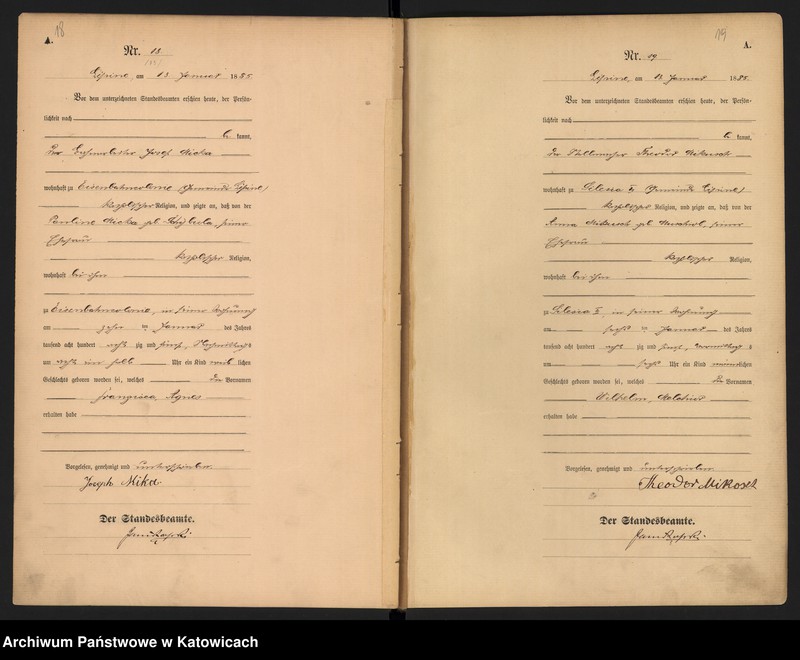 18
A.
Nr. 18
Lipine, am 13 Januar 1885.
Vor dem unterzeichneten Standesbeamten erschien heute, der Persön-
lichkeit nach
be kannt,
Der Joseph Micka
wohnhaft zu Eisenbahncolonie (Gemeinde Lipine)
katholischer Religion, und zeigte an, daß von der
Pauline Micka geb. seiner
Ehefrau
katholischer Religion,
wohnhaft bei ihm
zu Eisenbahncolonie, in seiner Wohnung
am Januar des Jahres
tausend acht hundert acht zig und fünf, Nachmittags
um acht ein halb Uhr ein Kind weib lichen
Geschlechts geboren worden sei, welches die Vornamen
Francisca, Agnes
erhalten habe
Vorgelesen, genehmigt und unterschrieben
Joseph Mika.
Der Standesbeamte.
19
A.
Nr. 19
Lipine, am 13 Januar 1885.
Vor dem unterzeichneten Standesbeamten erschien heute, der Persön-
lichkeit nach
be kannt,
der Theodor Mikosch
wohnhaft zu Silesia (Gemeinde Lipine)
katholischer Religion, und zeigte an, daß von der
Anna Mikosch geb. seiner
Ehefrau
katholischer Religion,
wohnhaft bei ihm
zu Silesia in seiner Wohnung
am Januar des Jahres
tausend acht hundert acht zig und fünf, Vormittags
um sechs Uhr ein Kind männlichen
Geschlechts geboren worden sei, welches die Vornamen
Wilhelm,
erhalten habe
Vorgelesen, genehmigt und unterschrieben
Theodor Mikosch
Der Standesbeamte.
Archiwum Państwowe w Katowicach